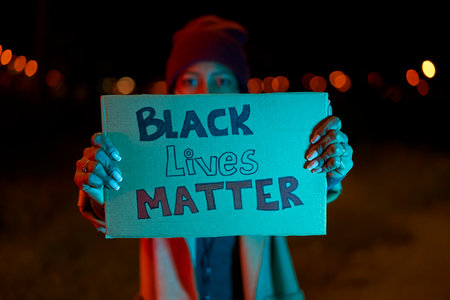 BLACK
Lives
MATTER